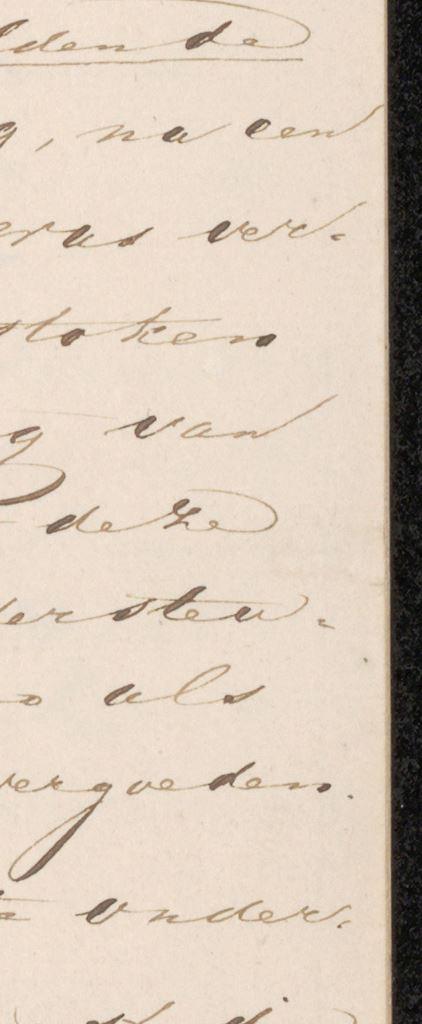 lden de
g, na een
eras ver-
stoken
g van
deze
dersteu-
o als
vergoeden.
onder-